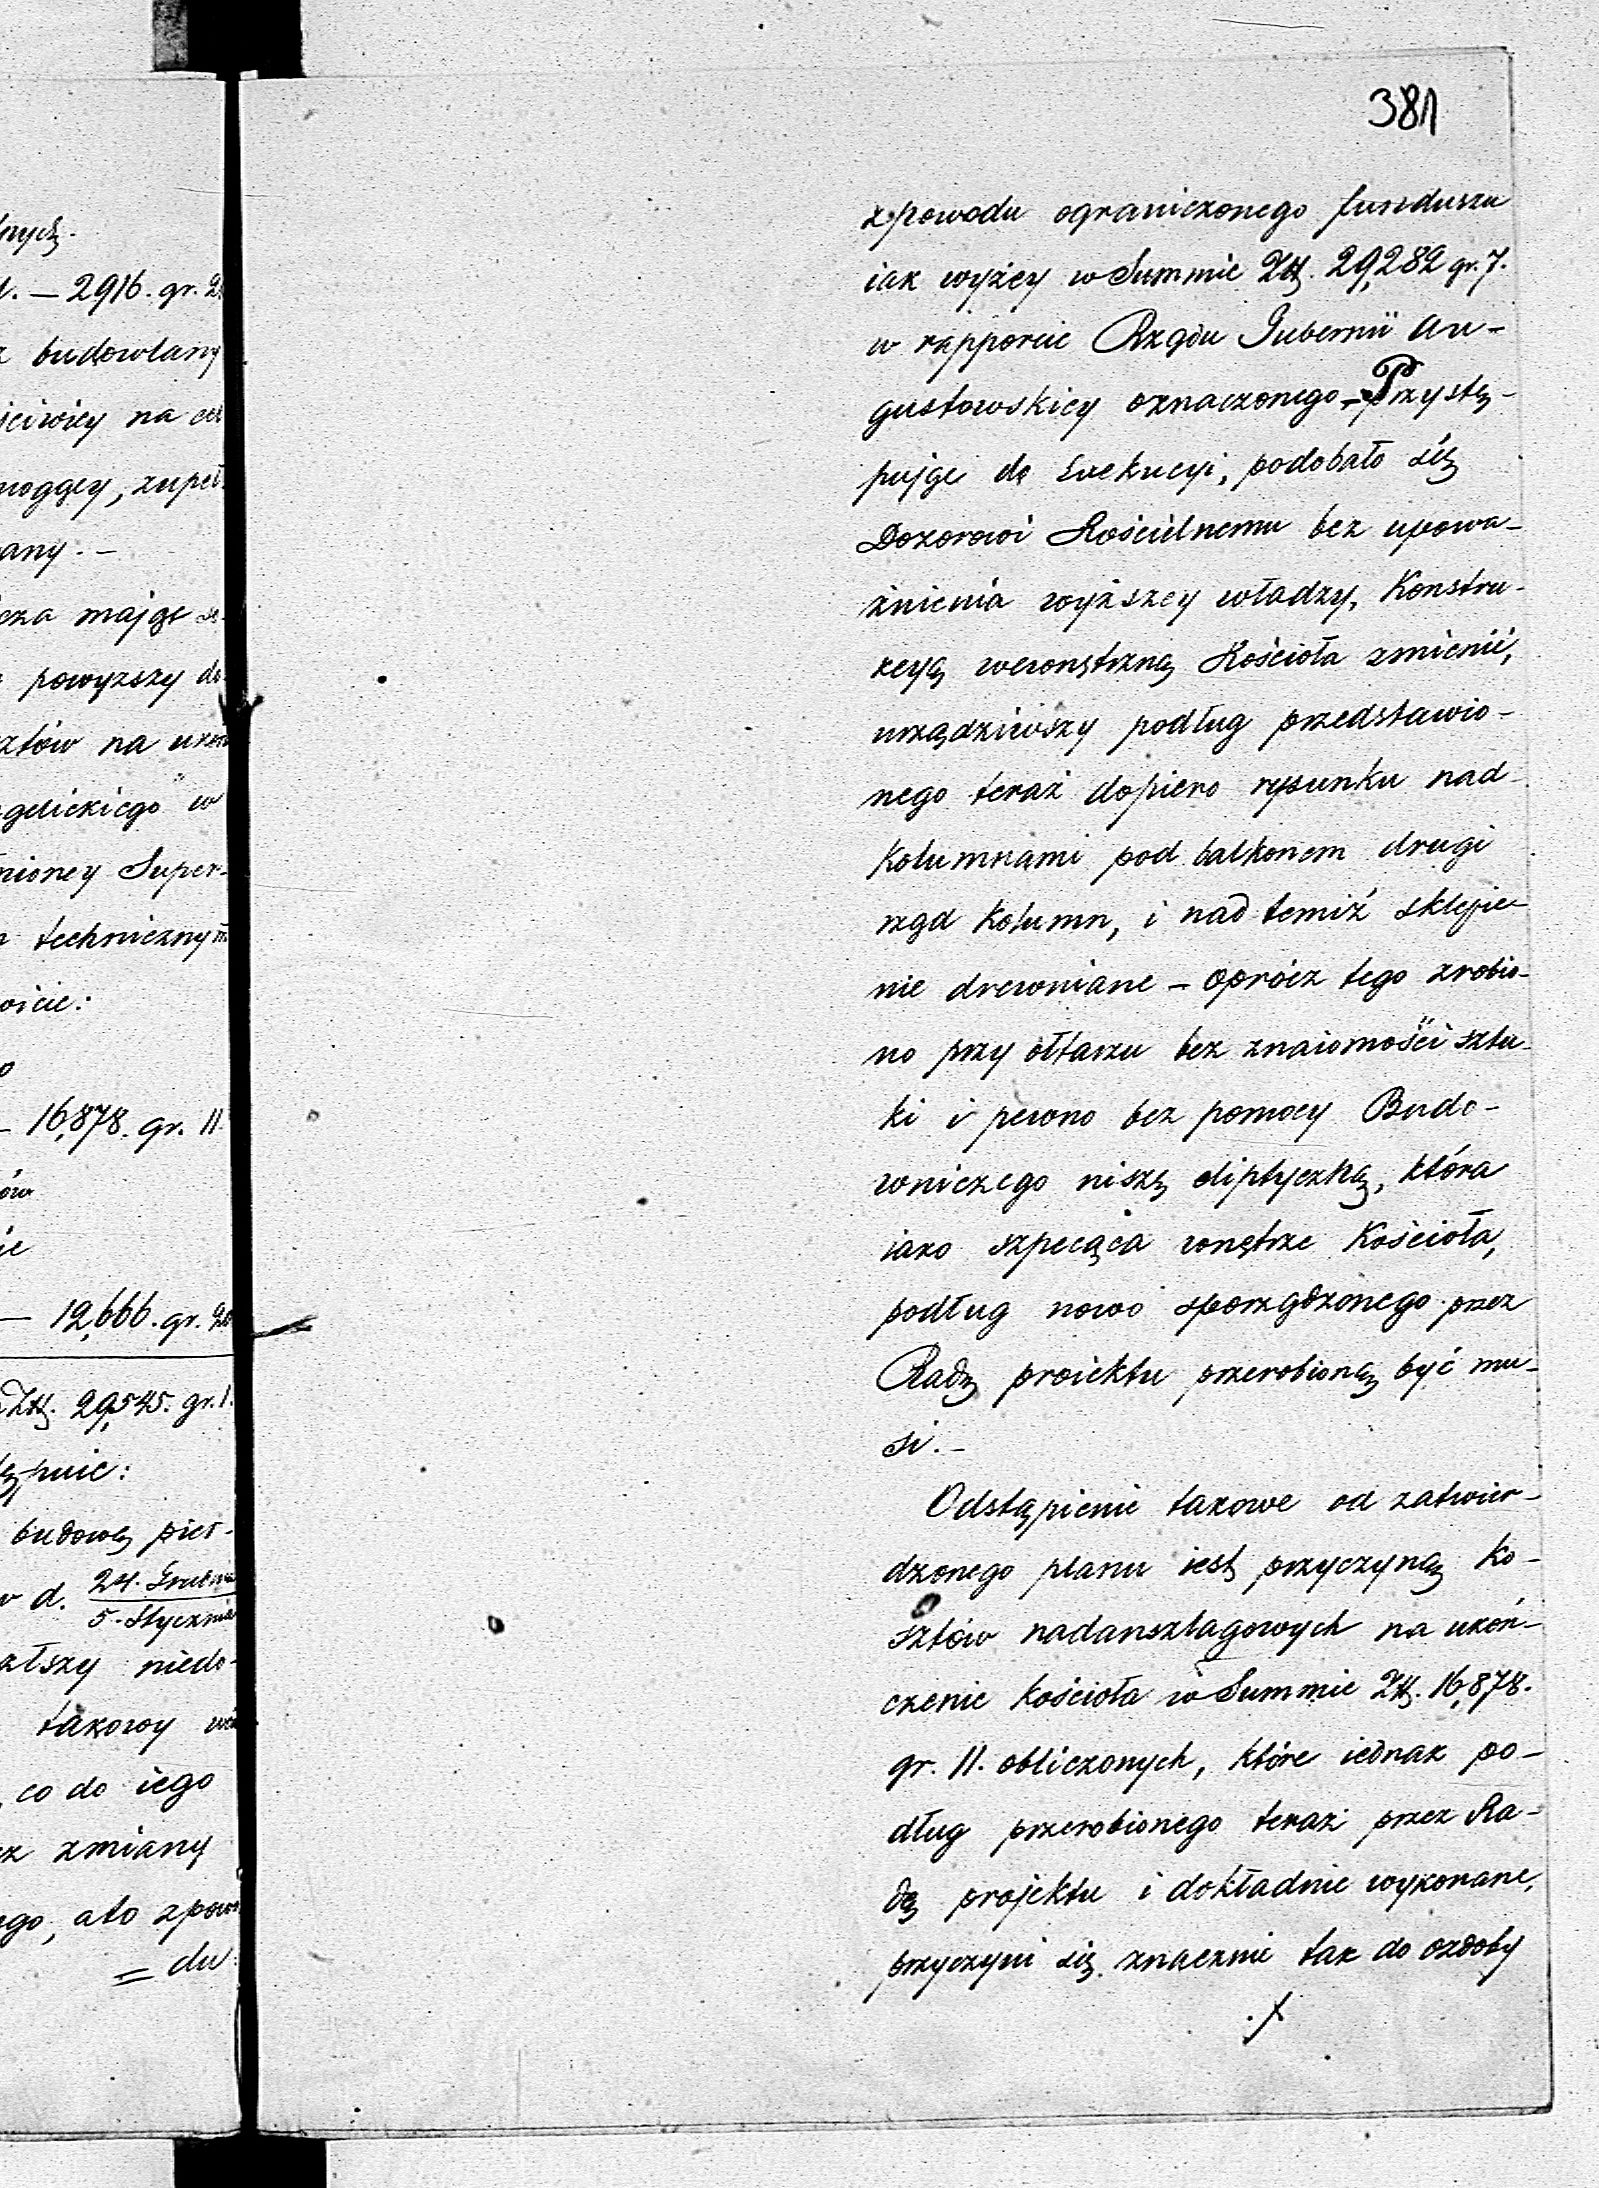 381
nych.
. — 2916. gr. 2
budowlany
ściwiey na
mogący, zupeł
any. —
cza mając
powyższy do
sztów na ukoń
gelickiego w
nioney Super-
technicznym
wicie:
— 16,878. gr. 11.
ów
ie
— 12,666. gr. 20
Złł. 29,545. gr. 1.
tępnie:
budowę pier-
w d. 24. Grudnia
5. Stycznia
atszy niedo-
takowy
, co do iego
zmiany
ego, a to z powo
= du
z powodu ograniczonego funduszu
iak wyżey w Summie Złł. 29,282 gr. 7.
w rapporcie Rządu Gubernii Au-
gustowskiey oznaczonego. – Przystę-
pując do Exekucyi, podobało się
Dozorowi Kościelnemu bez upowa-
żnienia wyższey władzy, Konstru-
kcyą wewnętrzną Kościoła zmienić,
urządziwszy podług przedstawio-
nego teraz dopiero rysunku nad
kolumnami pod balkonem drugi
rząd kolumn, i nad temiż sklepie-
nie drewniane – oprócz tego zrobio-
no przy ołtarzu bez znaiomości sztu-
ki i pewno bez pomocy Budo-
wniczego niszę eliptyczką, która
iako szpecąca wnętrze Kościoła,
podług nowo sporządzonego przez
Radę proiektu przerobioną być mu-
si. –
Odstąpienie takowe od zatwier-
dzonego planu iest przyczyną ko-
sztów nadanszlagowych na ukoń-
czenie kościoła w Summie Złł. 16,878.
gr. 11. obliczonych, które iednak po-
dług przerobionego teraz przez Ra-
dę projektu i dokładnie wykonane,
przyczyni się znacznie tak do ozdoby
./.